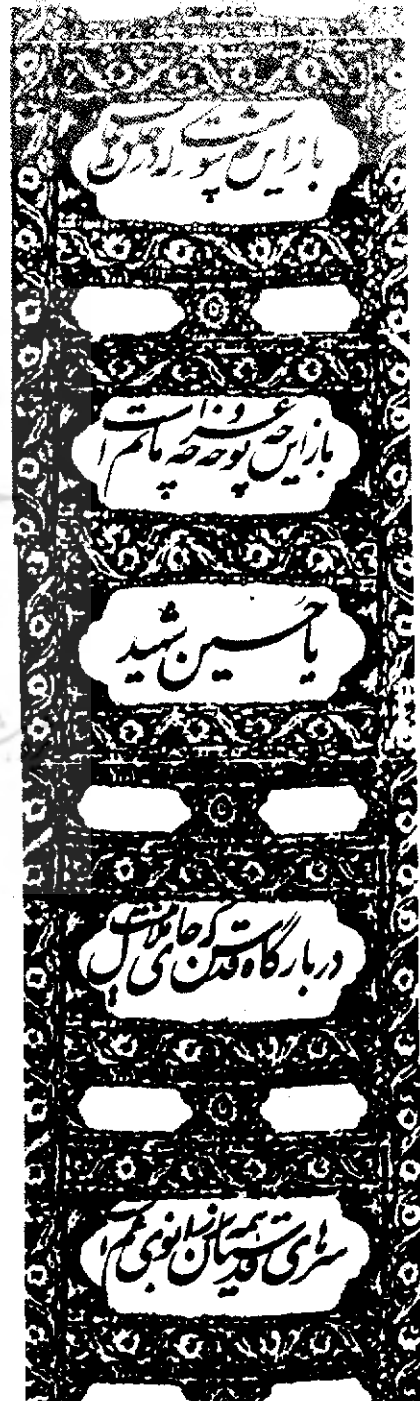 باز این چه شورش است که در
باز این چه نوحه و چه عزا و چه ماتم است
یا حسین شهید
در بارگاه قدس که جای ملال نیست
سرهای قدسیان همه بر زانوی غم است